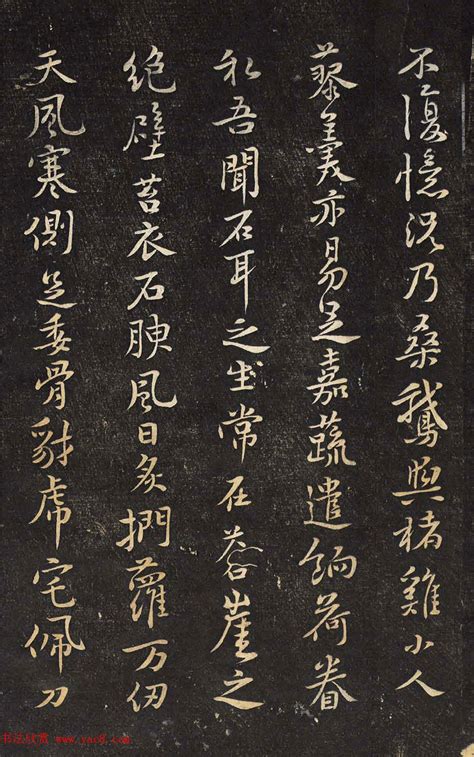 不復憶況乃桑鵝與楮雞小人
藜羹亦易足嘉蔬遣餉荷眷
私吾聞石耳之生常在蒼崖之
絶壁苔衣石腴風日炙捫蘿万仞
天風寒側足委骨豺虎宅佩刀
书法欣赏 www.yac8.com